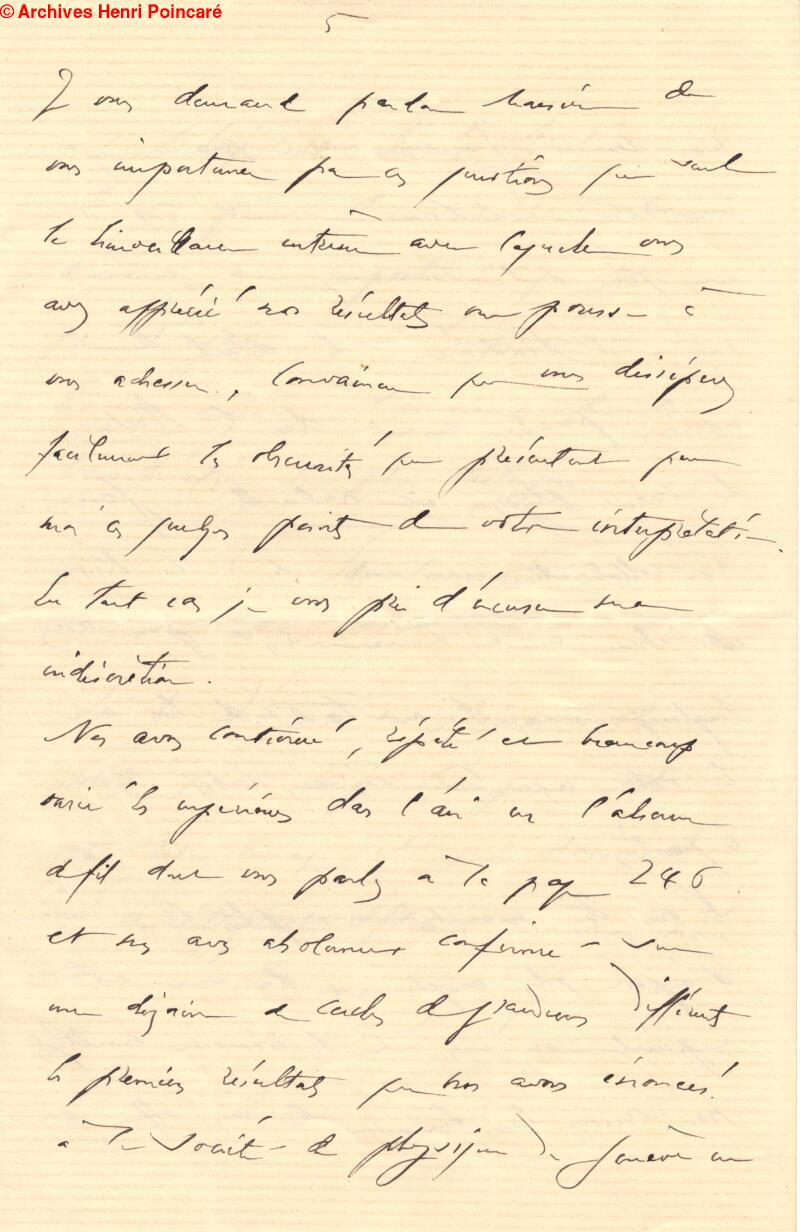 © Archives Henri Poincaré
5
Je vous demande pardon Monsieur de
vous importuner par ces questions que seule
la bienveillance extrême avec laquelle vous
avez apprécié nos résultats me pousse à
vous adresser, convaincu que vous dissiperez
facilement les obscurités que présentent pour
moi ces quelques points de votre interprétation.
En tout cas je vous prie d'excuser mon
indiscrétion.
Nous avons continué, répété et beaucoup
varié les expériences dans l'air en l'absence
de fil dont vous parlez à la page 246
et nous avons absolument confirmé sur
une dizaine de cercles de grandeurs différents
les premiers résultats que nous avons énoncés
à la Société de physique de Genève en